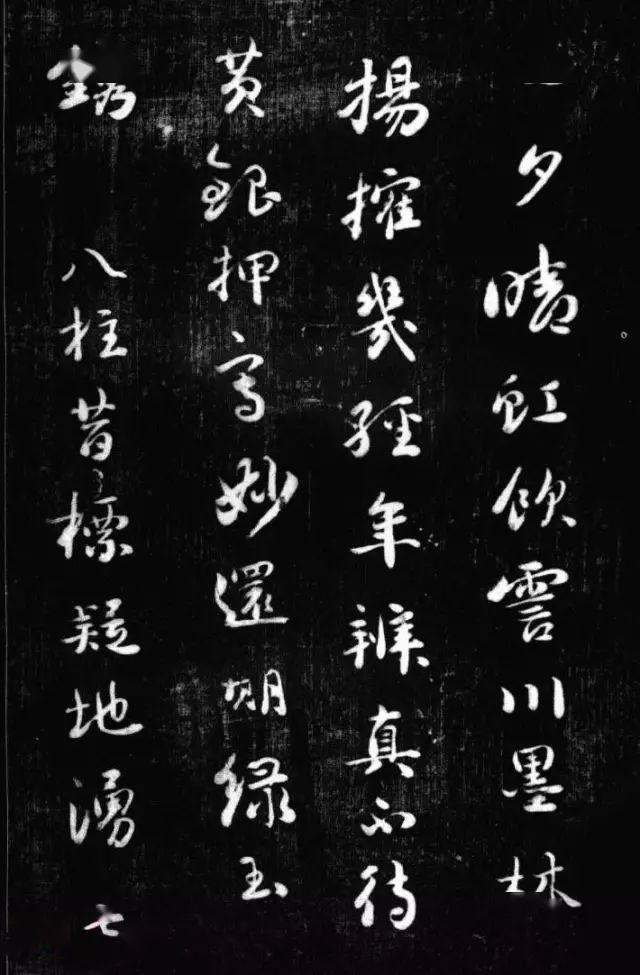 一夕晴虹飲霅川墨林
揚搉幾經年辨真不待
黃銀押高妙還期綠玉
鐫　八柱昔標疑地湧七